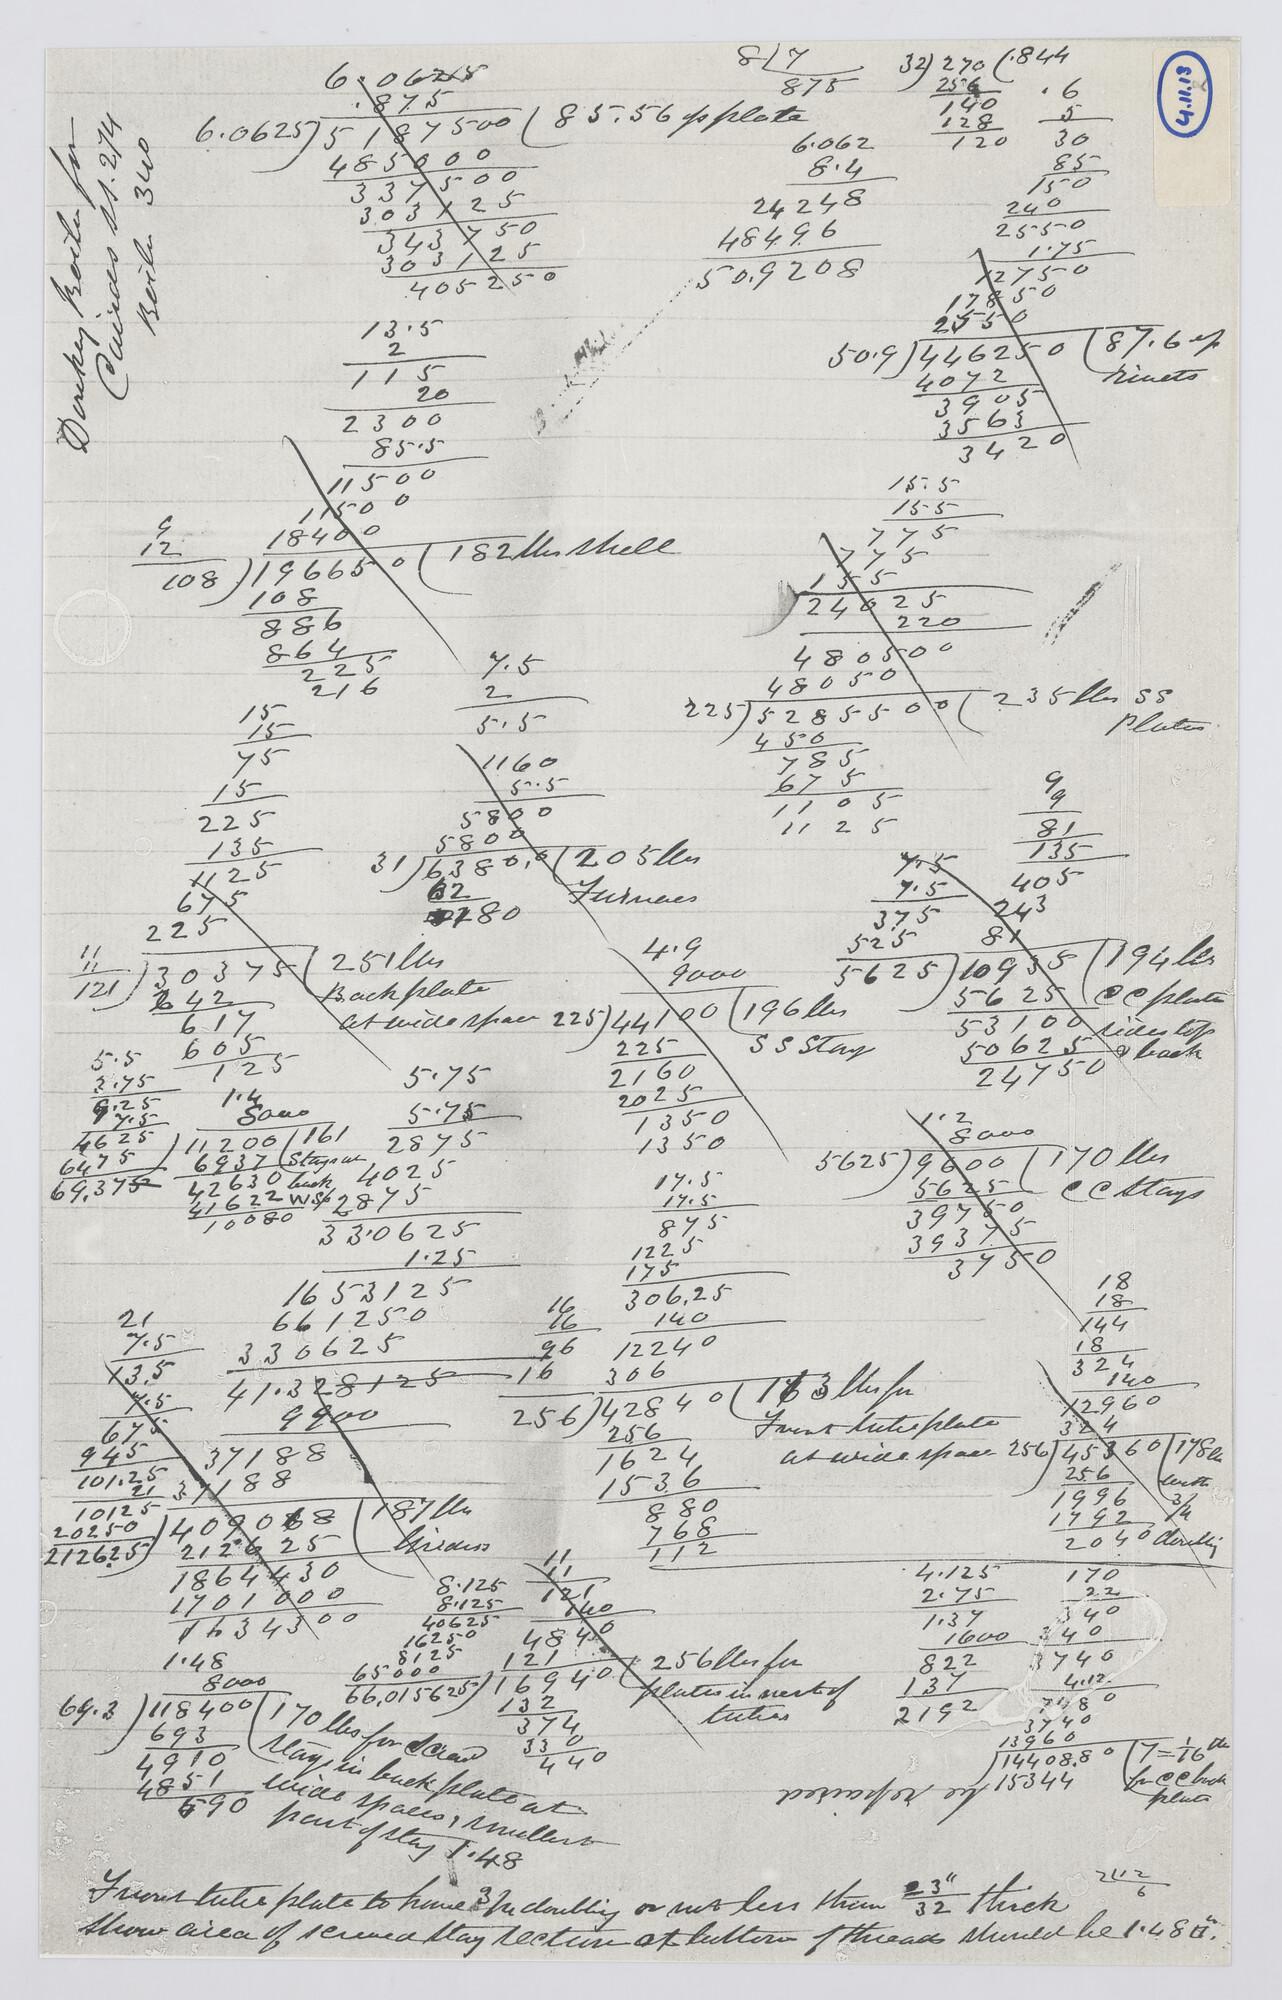 4.11.13
Donkey Boiler for
Cairds SS. 274
Boiler 340
6.0625
.875
6.0625)5187500(85.56 gs plate
485000
337500
303125
343750
303125
405250
8/7
875
6.062
8.4
24248
48496
50.9208
32)270(.844
256
140
128
120
.6
5
30
85
150
240
2550
1.75
12750
17850
2550
50.9)446250(87.6 gs
rivets
4072
3905
3563
3420
13.5
2
115
20
2300
85.5
11500
11500
18400
9
12
108)196650(182 lbs shell
108
886
864
225
216
15.5
155
775
775
155
24025
220
480500
48050
225)5285500(235 lbs SS
Plates
450
785
675
1105
1125
7.5
2
5.5
1160
5.5
5800
5800
31)6380.0(205 lbs
Furnaces
62
180
15
15
75
15
225
135
1125
675
225
11
11
121)30375(251 lbs
Back plate
at wide space
242
617
605
125
9
9
81
135
405
243
81
7.5
7.5
375
525
5625)10935(194 lbs
CC plate
sides top
& back
5625
53100
50625
24750
4.9
9000
225)44100(196 lbs
SS Stays
225
2160
2025
1350
1350
5.5
3.75
9.25
7.5
4625
6475
69.375
1.4
8000
11200(161
Stays at
back
W.Sp
6937
42630
41622
10080
5.75
5.75
2875
4025
2875
33.0625
1.25
1653125
661250
330625
41.328125
9900
37188
37188
409068(187 lbs
Girders
212625
1864430
1701000
1634300
1.2
8000
5625)9600(170 lbs
CC Stays
5625
39750
39375
3750
17.5
17.5
875
1225
175
306.25
140
12240
306
16
16
96
16
256)42840(163 lbs for
Front tube plate
at wide space
256
1624
1536
880
768
112
18
18
144
18
324
140
12960
324
256)45360(178 lbs
with
3/4
doubling
256
1996
1792
2040
21
7.5
13.5
7.5
675
945
101.25
21
10125
20250
212625
8.125
8.125
40625
16250
8125
65000
66.015625
11
11
121
140
4840
121
16940(256 lbs for
plates in nest of
tubes
132
374
330
440
1.48
8000
69.3)118400(170 lbs for screw
stay in back plate at
wide spaces, smallest
part of stay 1.48
693
4910
4851
590
4.125
2.75
1.37
1600
822
137
2192
170
22
340
340
3740
4.12
7480
3740
13960
14408.80(7=1/16 lbs
for CC back
plate
15344
be repaired
Front tube plate to have 3/4 doubling or not less than 23"/32 thick
Show area of screwed stay section at bottom of threads should be 1.48 □".